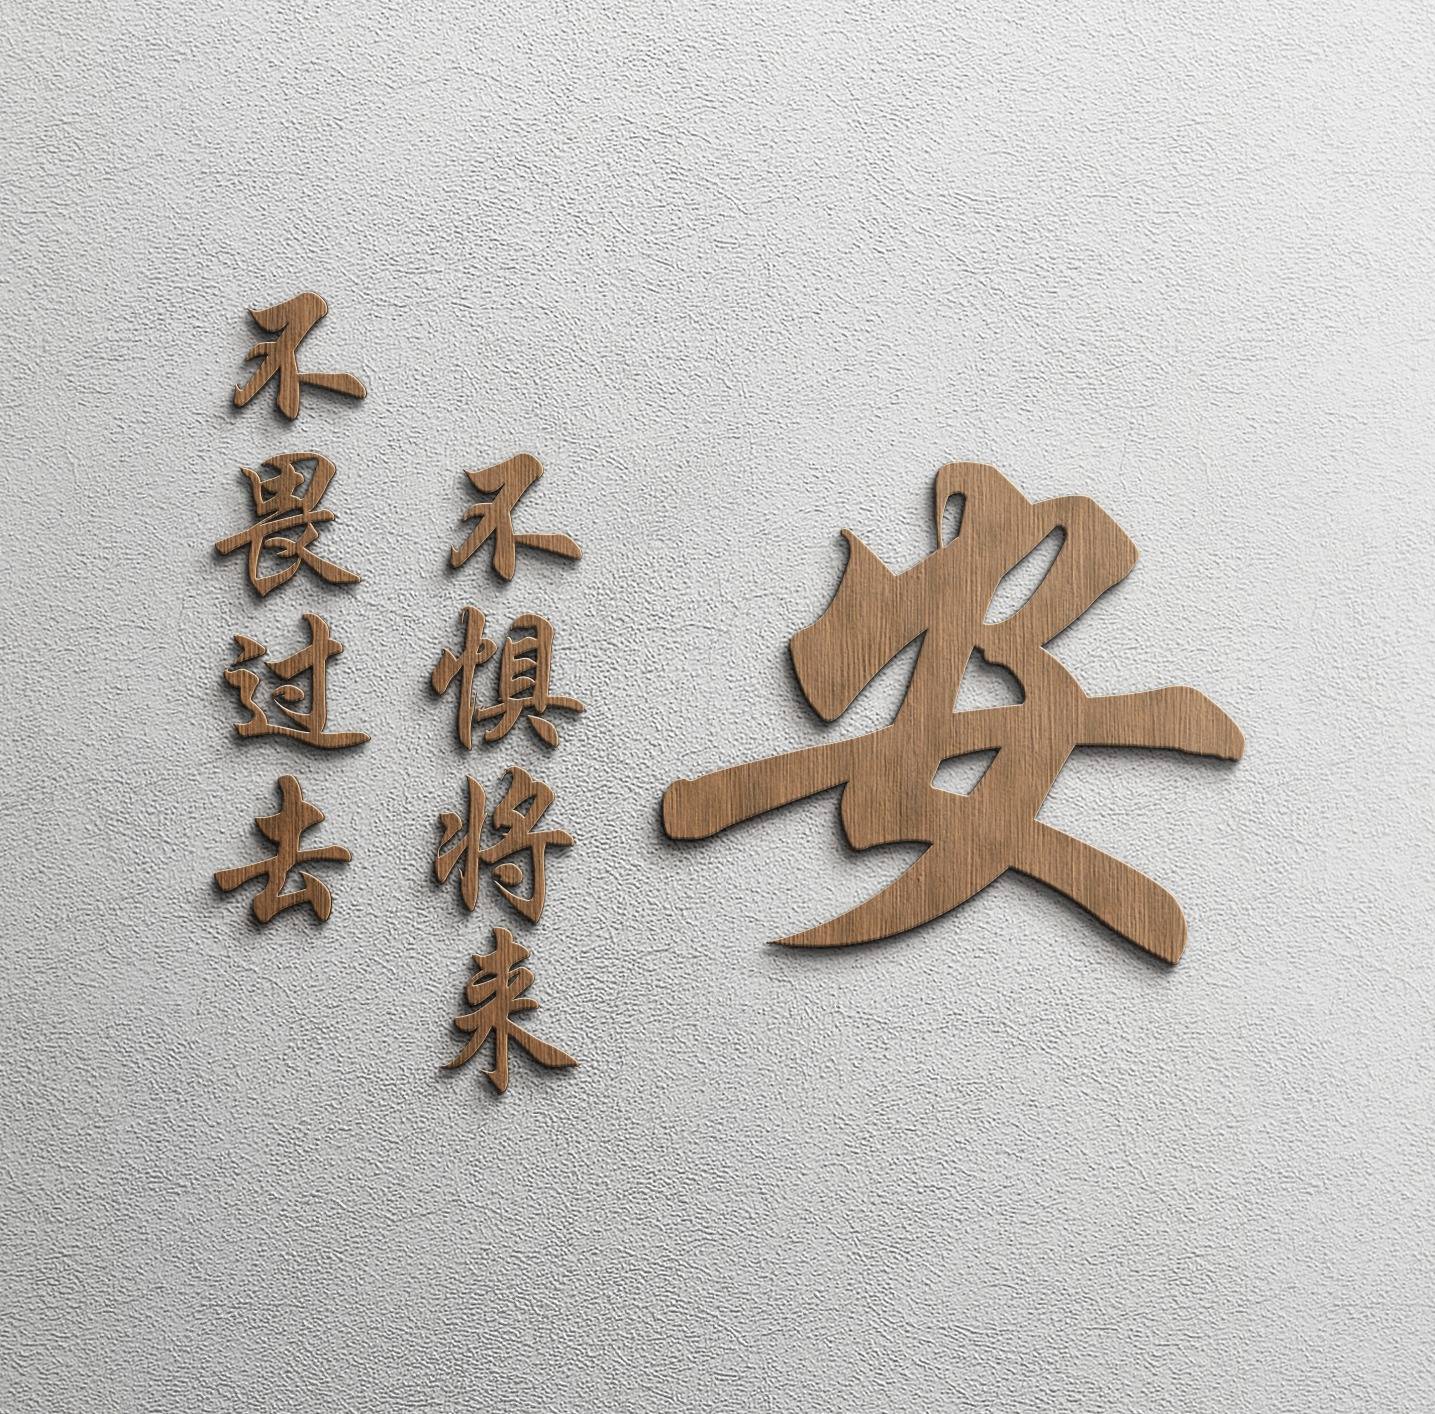 不畏过去
不惧将来
安